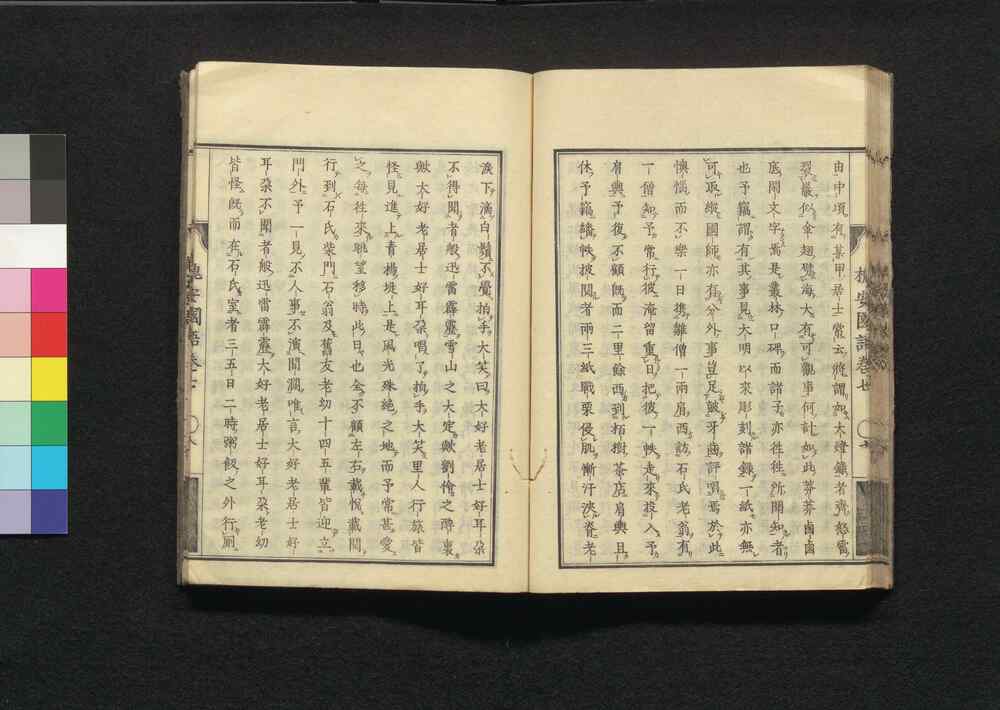 由中頃有某甲居士嘗云將謂如大燈錄者齊怒雷
裂巖似傘翅劈海大有可觀事何計如此莽莽鹵鹵
底閑文字焉是叢林口碑而諸子亦徃徃所聞知者
也予竊謂有其事見大明以來彫刻諸錄一紙亦無
可取縱國師亦有分外事豈足皷牙齒評唱焉於此
懊惱而不樂一日携雛僧一兩肩西訪石氏老翁有
一僧知予常行彼淹留重日把彼一帙走來投入予
肩輿予復不顧既而二里餘西到柏樹茶店肩輿且
休予竊繙帙披閱者兩三紙戰栗侵肌慚汗浹脊老
淚下滴白鬚不覺拍手大笑曰大好老居士好耳朶
不得聞者般迅雷霹靂雪山之大定歟劉伶之醉裏
歟大好老居士好耳朶唱了拍手大笑里人行旅皆
怪見進上青楊堤上是風光殊絕之地而予常甚愛
之每徃來眺望移時此日也全不顧左右戴悅戴聞
行到石氏柴門石翁及舊友老幼十四五輩皆迎立
門外予一見不人事不演闊瀾唯言大好老居士好
耳朶不聞者般迅雷霹靂大好老居士好耳朶老幼
皆怪既而在石氏室者三五日二時粥飯之外行厠
槐安國語卷七 〇七
槐安國語卷七 〇八